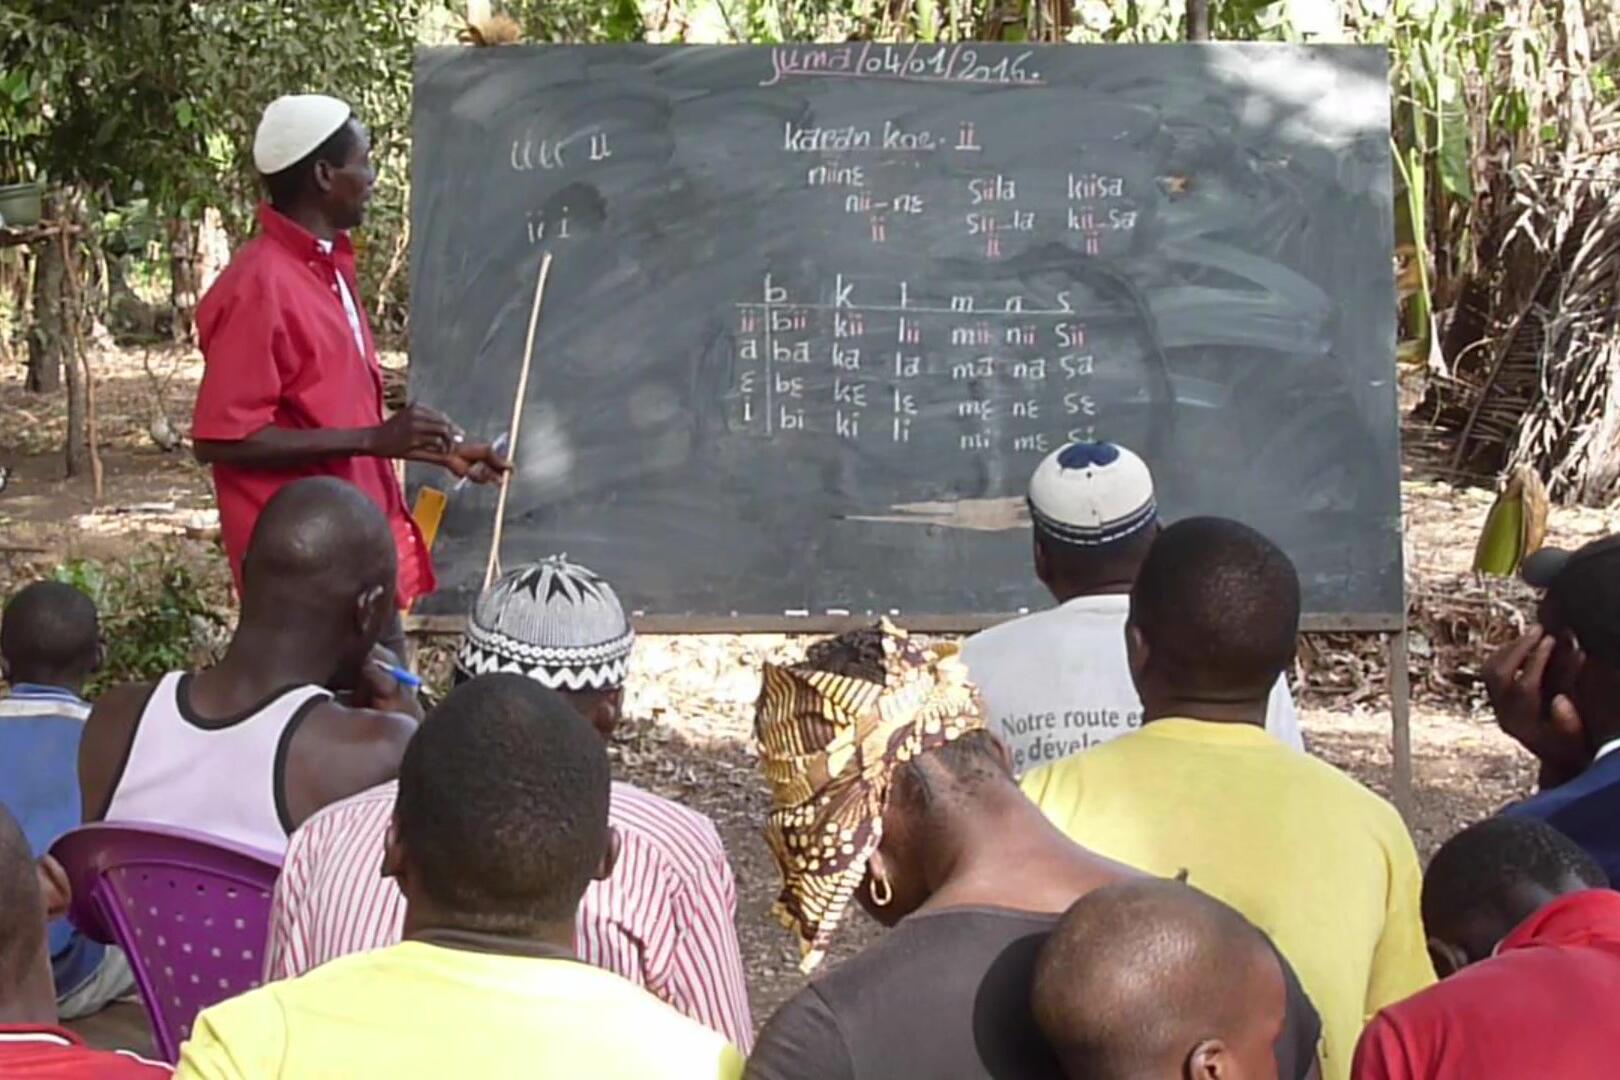 Juma/04/01/2016.
ɩɩ ɩɩ
ii i
karan kae. ii
niinɛ siila kiisa
nii-nɛ sii-la kii-sa
ii ii ii
b k l m n s
ii bii kii lii mii nii sii
a ba ka la ma na sa
ɛ bɛ kɛ lɛ mɛ nɛ sɛ
i bi ki li mi mɛ si
Notre route es
de dévelo